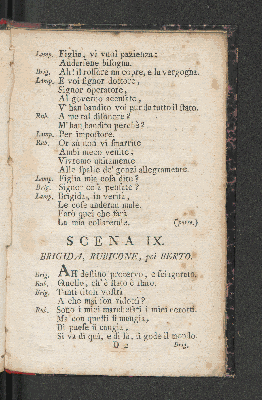 Lamp. Figlia, vi vuol pazienza:
Andersene bisogna.
Brig. Ah! il rossore mi copre, e la vergogna.
Lamp. E voi signor dottore,
Signor operatore,
Al governo accusato,
V' han bandito voi pur da tutto il stato.
Rub. A me tal disonore?
M' han bandito perchè?
Lamp. Per impostore.
Rub. Or sù non vi smarrite
Ambi meco venite;
Vivremo unitamente
Alle spalle de' gonzi allegramente.
Lamp. Figlia mia cosa dite?
Brig. Signor cosa pensate?
Lamp. Brigida, in verità,
Le cose anderan male.
Farò quel che farà
La mia collaterale. (parte.)
SCENA IX.
BRIGIDA, RUBICONE, poi BERTO.
Brig. AH destino protervo, e sciagurato,
Rub. Quello, ch' è stato è stato.
Brig. Tanti titoli vostri
A che mai son ridotti?
Rub. Sono i miei marchesati i miei
Ma con questi si mangia,
Di paese si cangia,
Si va di quà, e di là, si gode il mondo.
D 2 Brig.